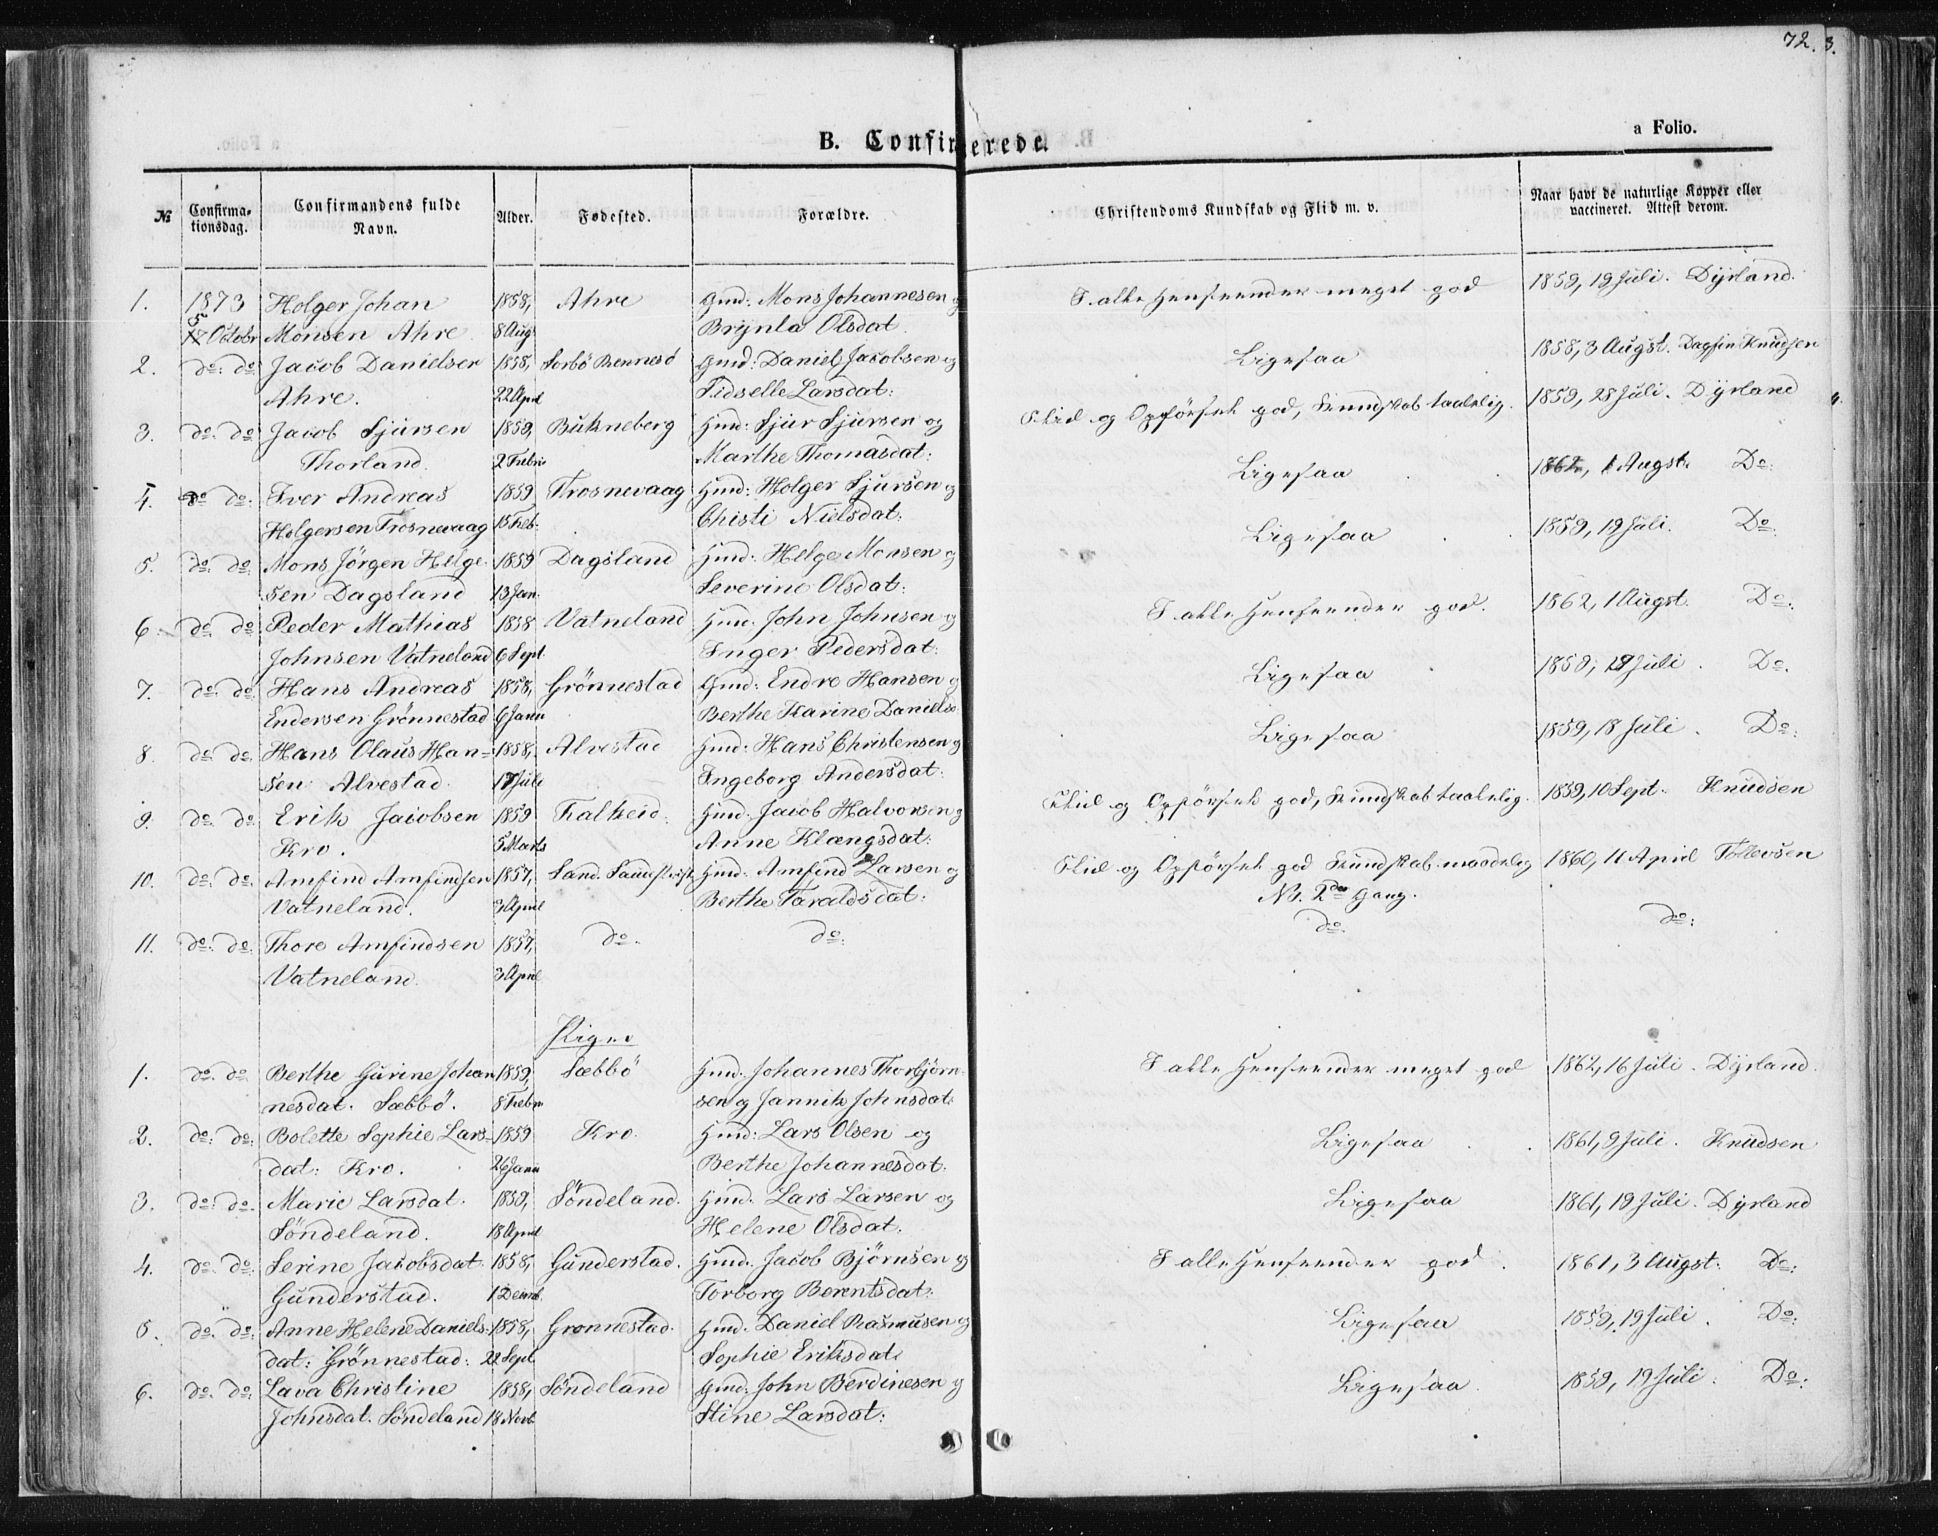 72. 3.
B. Confirmerede.
a Folio.
№ Confirma-tionsdag. Confirmandens fulde Navn. Alder. Fødested. Forældre. Christendoms Kundskab og Flid m. v. Naar havt de naturlige Kopper eller vaccineret. Attest derom.
1. 1873 Holger Johan 1858, Ahre Gmd: Mons Johannesen og I alle Henseender meget god 1859, 19 Juli. Dyrland.
5 Octobr Monsen Ahre 8 Aug Brynla Olsdat.
2. do: do Jacob Danielsen 1858, Sorbö Rennesö Gmd: Daniel Jacobsen og Ligesaa 1858, 3 Augst. Dagfin Knudsen
Ahre. 22 April Sidselle Larsdat:
3. do. do Jacob Sjursen 1859, Bukneberg Hmd: Sjur Sjursen og Flid og Opförsel god, Kundskab taalelig. 1859, 28 Juli. Dyrland
Thorland. 2 Febru Marthe Thomasdat:
4. do do: Iver Andreas 1859 Trosnevaag Hmd: Holger Sjursen og Ligesaa 1862, 1 Augst. Do:
Holgersen Trosnevaag 15 Feb: Christi Nielsdat:
5. do: do: Mons Jörgen Helge- 1859 Dagsland Hmd: Helge Monsen og Ligesaa 1859, 19 Juli. Do:
sen Dagsland 13 Jan: Severine Olsdat:
6. do. do Peder Mathias 1858 Vatneland Hmd. John Johnsen og I alle Henseender god. 1862, 1 Augst. Do:
Johnsen Vatneland 6 Sept. Inger Pedersdat:
7. do. do: Hans Andreas 1858, Grönnestad Gmd: Endre Hansen og Ligesaa 1858, 19 Juli. Do.
Endersen Grönnestad 6 Janu Berthe Karine Daniels
8. do do: Hans Olaus Han- 1858, Alvestad Hmd: Hans Christensen og Ligesaa 1859, 18 Juli. Do:
sen Alvestad. 17 Juli Ingeborg Andersdat:
9. do. do: Erik Jacobsen 1859 Falkeid. Hmd. Jacob Halvorsen og Flid og Opförsel god, Kundskab taalelig. 1859, 10 Sept. Knudsen
Kro. 5 Marts Anne Klængsdat:
10. do: do: Amfind Amfindsen 1857, Sand. Hmd. Amfind Larsen og Flid og Opförsel god Kundskab maadelig 1860, 11 April Tollevsen
Vatneland. 3 April Berthe Taraldsdat: No. 2den Gang.
11. do: do: Thore Amfindsen 1857, do. do: do. do:
Vatneland. 3 April
Piger
1. do. do: Berthe Gurine Johan 1859, Sæbbö Hmd. Johannes Thorbjörn- I alle Henseender meget god 1862, 16 Juli. Dyrland.
nesdat. Sæbbö. 8 Febru sen og Jannik Johnsdat:
2. do: do: Bolette Sophie Lars- 1859 Kro. Hmd: Lars Olsen og Ligesaa 1861, 9 Juli. Knudsen
dat: Kro. 26 Janu Berthe Johannesdat:
3. do: do. Marie Larsdat. 1859, Söndeland. Hmd. Lars Larsen og Ligesaa 1861, 19 Juli. Dyrland
Söndeland. 18 April Helene Olsdat:
4. do. do: Serine Jacobsdat 1858, Gunderstad. Hmd. Jacob Bjørnsen og I alle Henseender god. 1861, 3 Augst: Do:
Gunderstad. 1 Decmb. Torborg Berentsdat:
5. do. do: Anne Helene Daniels- 1858, Gronnestad. Hmd. Daniel Rasmusen og Ligesaa 1859, 19 Juli. Do:
dat: Grönnestad: 22 Sept Sophie Eriksdat:
6. do. do: Lava Christine 1858, Söndeland Gmd: John Berdinesen og Ligesaa. 1859, 19 Juli. Do:
Johnsdat. Söndeland 18 Novb. Stine Larsdat: